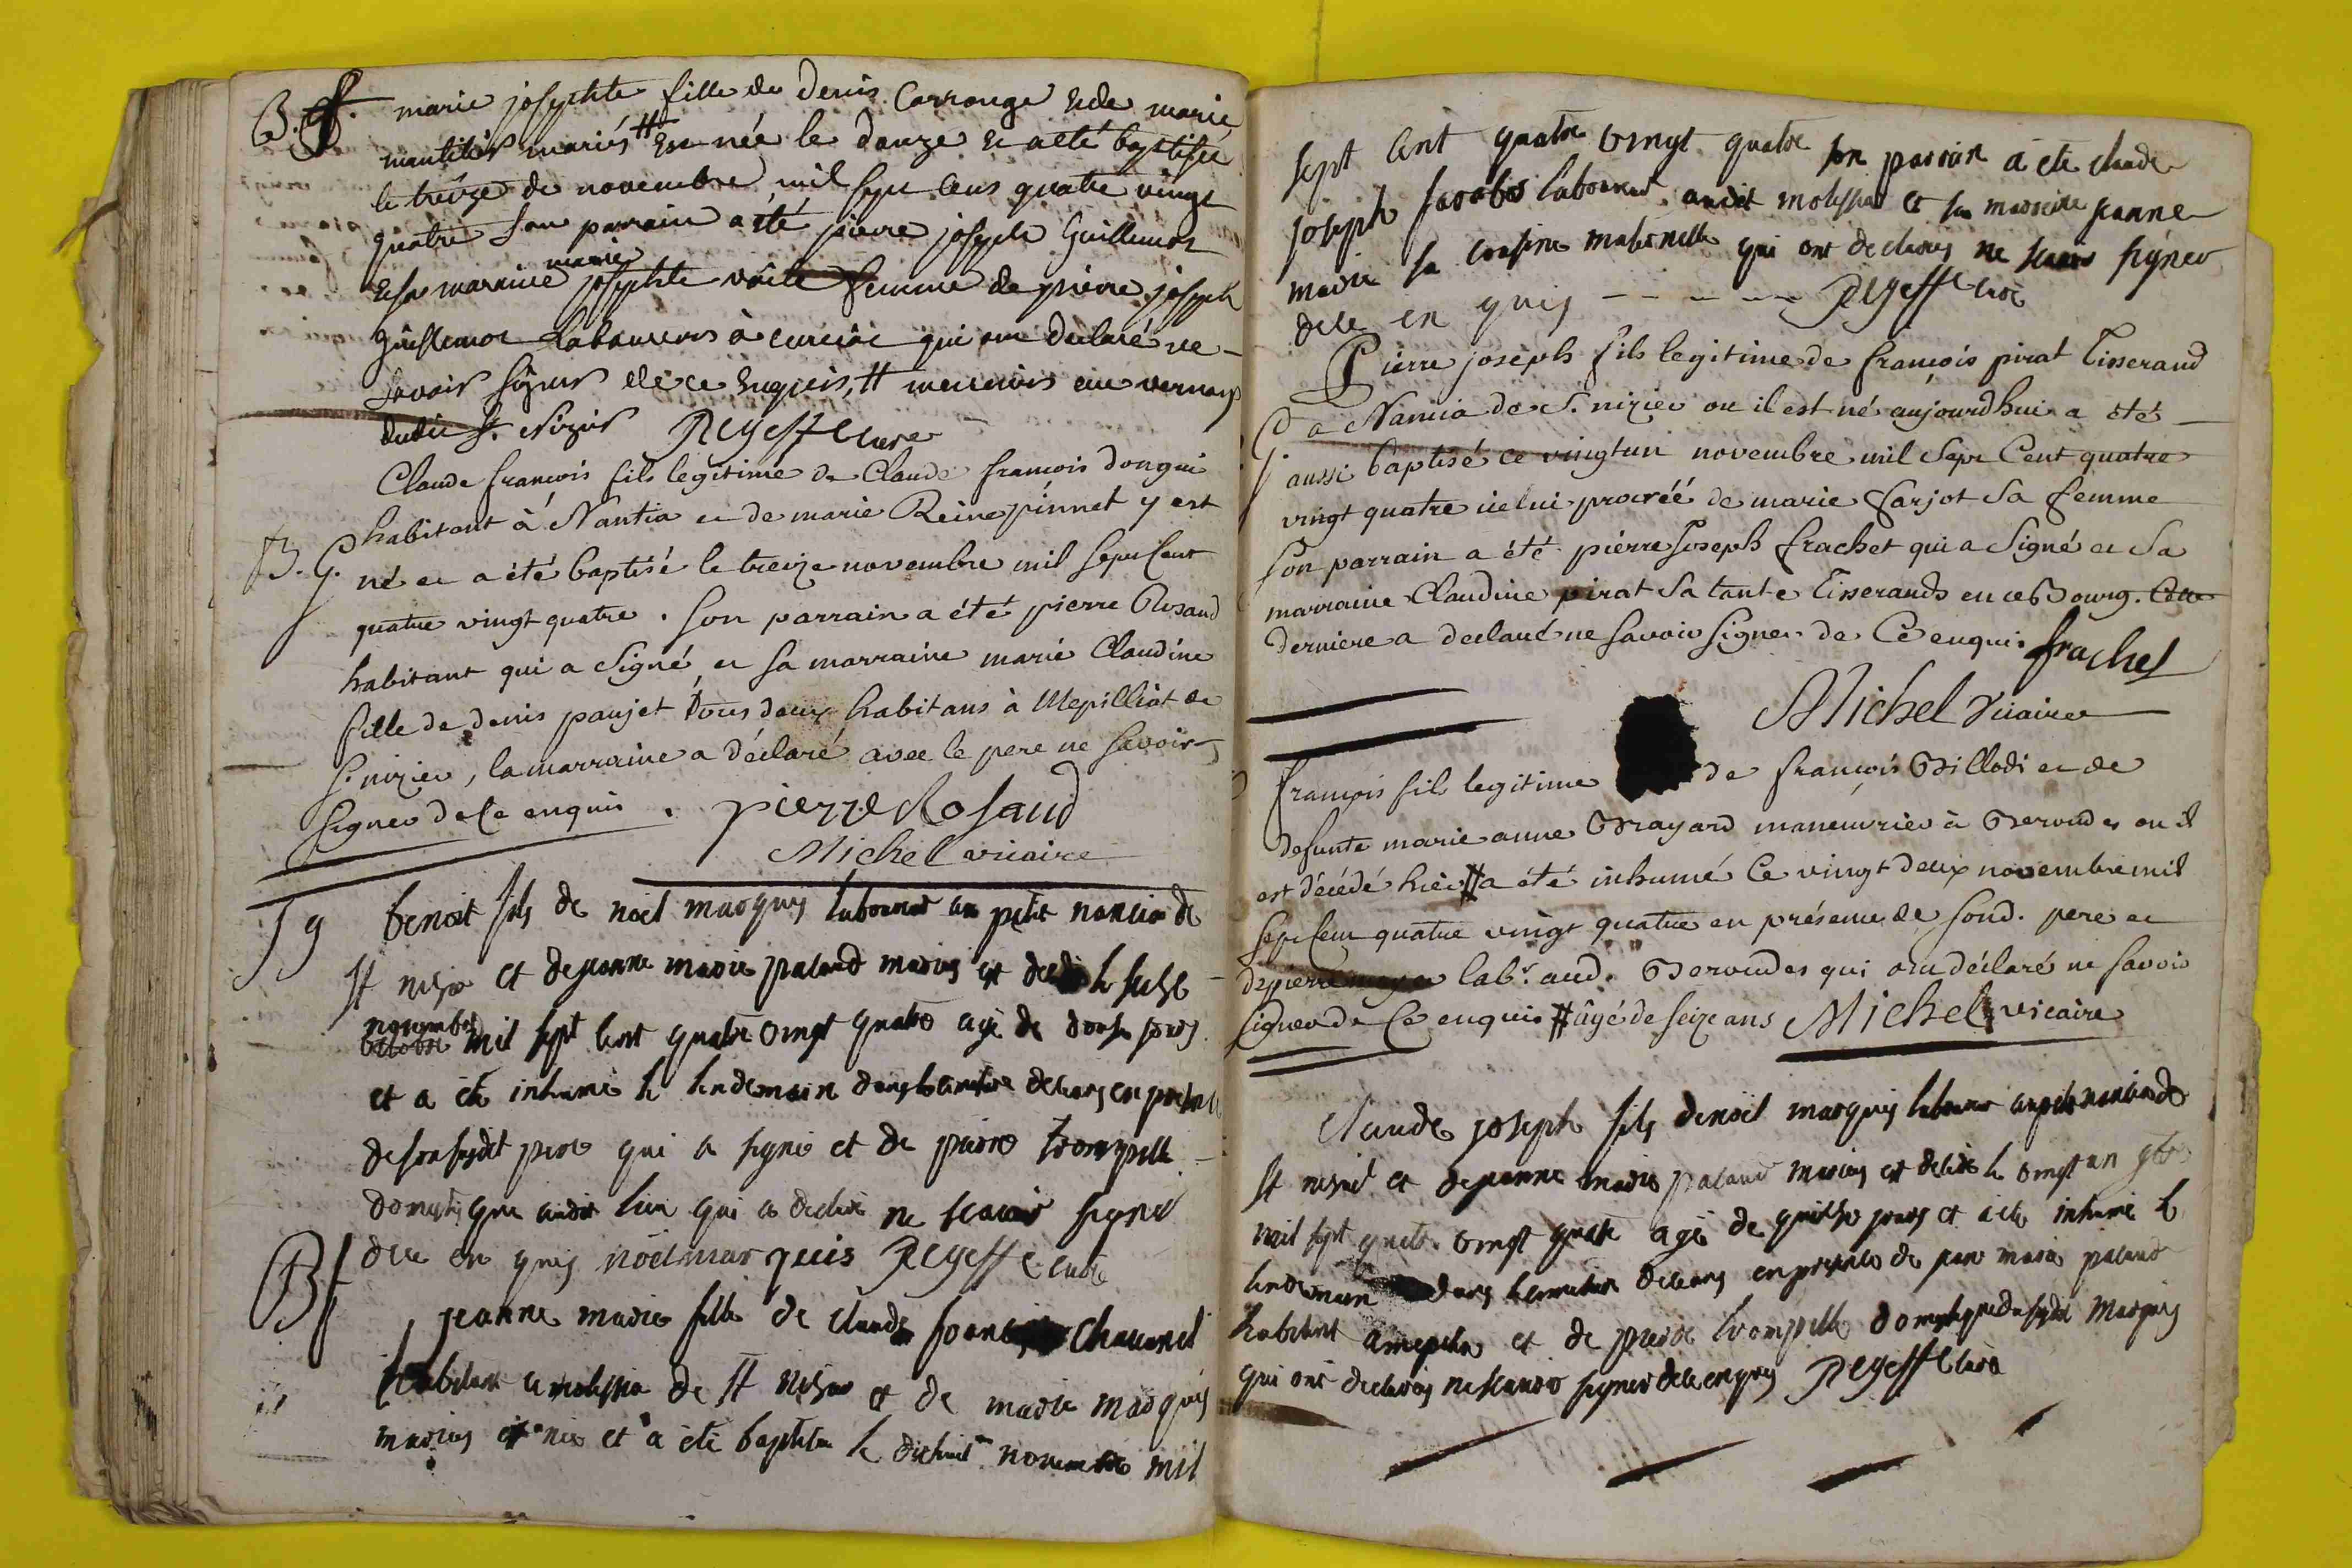 B. f. marie josephte fille de Denis Carronge et de marie
mariés # est née le douze et a eté baptisée
le treize de novembre mil sept cens quatre vingt
quatre son parrain a été pierre joseph Guillemot
et sa marraine marie josephte femme de pierre joseph
Guillemot Laboureurs à qui ont declaré ne
savoir signer de ce enquis, #
dudit St. Nizier Regeffe curé
Claude françois fils legitime de Claude françois dongui
habitant à Nantia et de marie Reine pinnet y est
B. G. né et a été baptisé le treize novembre mil sept Cent
quatre vingt quatre. Son parrain a été pierre Rosand
habitant qui a signé, et sa marraine marie Claudine
fille de denis paujet tous deux habitans à Mepilliat de
St. nizier, la marraine a déclaré avec le pere ne savoir
signer de Ce enquis. pierre Rosaud
Michel vicaire
S g benoit fils de noël marquis laboureur au petit nancia de
St nizier et de jeanne marie paland mariés est decedé le seize
novembre mil sept cent quatre vingt quatre agé de douze jours
et a été inhumé le lendemain dans le cimetiere de ceans en presence
de son susdit pere qui a signé et de pierre trompille
domestique audit lieu qui a declaré ne scavoir signer
de ce en quis noël marquis Regeffe curé
B f jeanne marie fille de claude francois chavanel
habitant a molissia de St nizier et de marie marquis
mariés est née et a été baptisée le dixhuit novembre mil
sept cent quatre vingt quatre son parrain a été claude
joseph laboureur audit molissia et sa marraine jeanne
marie sa cousine maternelle qui ont declarés ne scavoir signer
de ce en quis Regeffe curé
Pierre joseph fils legitime de françois pirat Tisserand
G. a Nancia de S. nizier ou il est né aujourdhui a été
aussi baptisé ce vingtun novembre mil Sept Cent quatre
vingt quatre icelui procréé de marie Sarjot Sa femme
Son parrain a été pierre Joseph frachet qui a Signé et Sa
marraine Claudine pirat Sa tante Tisserands en ce Bourg. Cette
derniere a declaré ne savoir signer de Ce enquis frachet
Michel Vicaire
françois fils legitime de françois Billodi et de
defunte marie anne Brayard maneuvrier à Bervendes ou il
est décédé hier # a été inhumé Ce vingt deux novembre mil
sept Cent quatre vingt quatre en présence de sond. pere et
de pierre labr. aud. Bervendes qui ont déclaré ne savoir
signer de Ce enquis # âgé de seize ans Michel vicaire
claude joseph fils de noël marquis laboureur au petit nancia de
St nizier et de jeanne marie paland mariés est decedé le vingt un 9bre
mil sept quatre vingt quatre agé de quinze jours et a été inhumé le
lendemain dans le cimetiere de ceans en presence de jean marie paland
habitant a mepilia et de pierre trompille domestique dudit marquis
qui ont declarés ne scavoir signer de ce enquis Regeffe curé